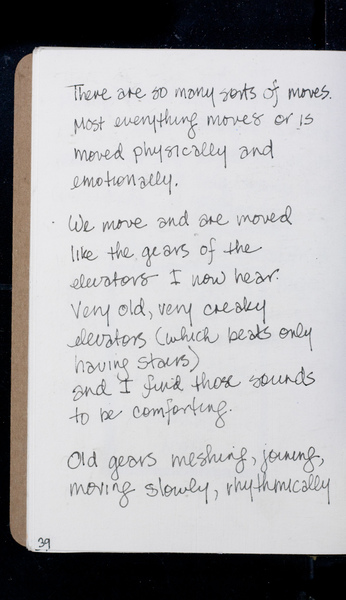 There are so many sorts of moves.
Most everything moves or is
moved physically and
emotionally.
We move and are moved
like the gears of the
elevators I now hear.
Very old, very creaky
elevators (which beats only
having stairs)
and I find those sounds
to be comforting.
Old gears meshing, joining,
moving slowly, rhythmically
39